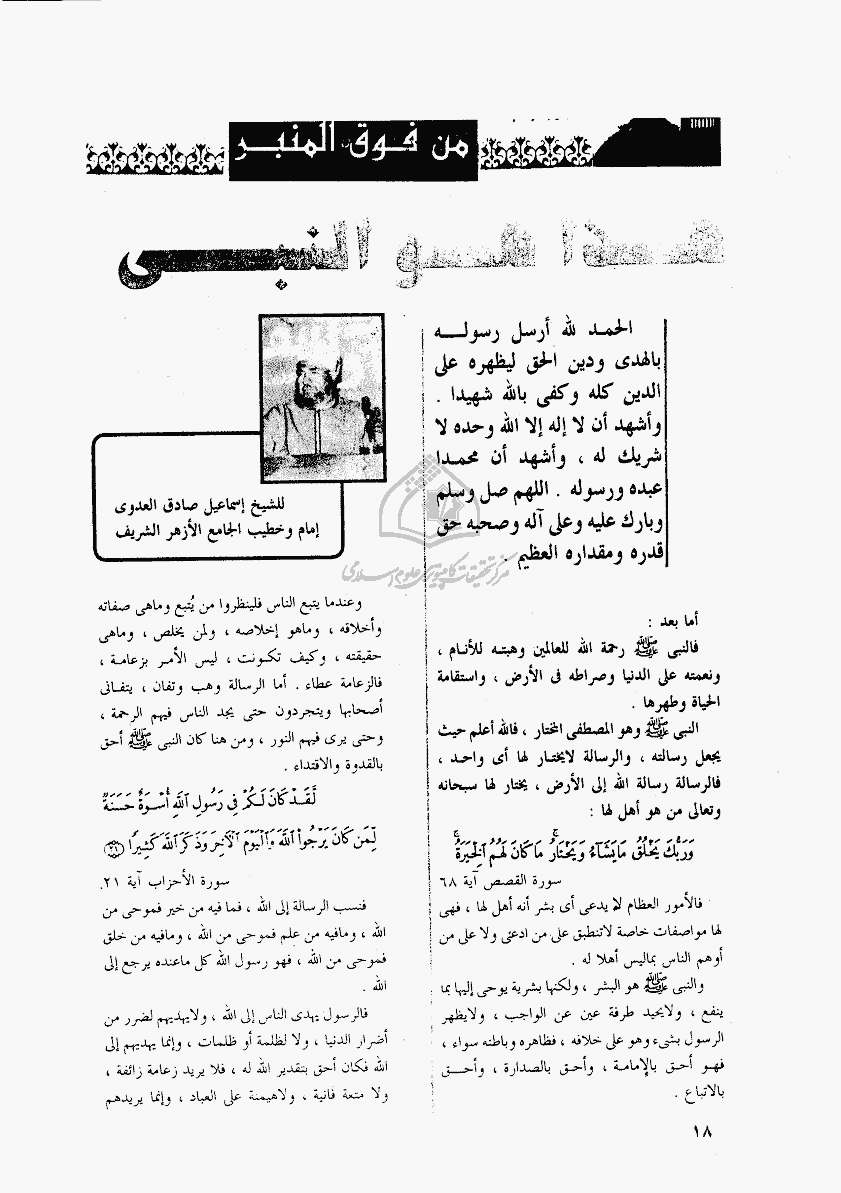 من فوق المنبر
شذا هو النبى
الحمد لله أرسل رسوله
بالهدى ودين الحق ليظهره على
الدين كله وكفى بالله شهيدا .
وأشهد أن لا إله إلا الله وحده لا
شريك له ، وأشهد أن محمدا
عبده ورسوله . اللهم صل وسلم
وبارك عليه وعلى آله وصحبه حق
قدره ومقداره العظيم .
للشيخ إسماعيل صادق العدوى
إمام وخطيب الجامع الأزهر الشريف
مركز تحقيقات كامپيوترى علوم اسلامى
أما بعد :
فالنبى ﷺ رحمة الله للعالمين وهبته للأنام ،
ونعمته على الدنيا وصراطه فى الأرض ، واستقامة
الحياة وطهرها .
النبى ﷺ وهو المصطفى المختار ، فالله أعلم حيث
يجعل رسالته ، والرسالة لايختار لها أى واحد ،
فالرسالة رسالة الله إلى الأرض ، يختار لها سبحانه
وتعالى من هو أهل لها :
وَرَبُّكَ يَخْلُقُ مَا يَشَآءُ وَيَخْتَارُ ۗ مَا كَانَ لَهُمُ ٱلْخِيَرَةُ ۚ
سورة القصص آية ٦٨
فالأمور العظام لا يدعى أى بشر أنه أهل لها ، فهى
لها مواصفات خاصة لاتنطبق على من ادعى ولا على من
أوهم الناس بماليس أهلا له .
والنبى ﷺ هو البشر ، ولكنها بشرية يوحى إليها بما
ينفع ، ولايحيد طرفة عين عن الواجب ، ولايظهر
الرسول بشىء وهو على خلافه ، فظاهره وباطنه سواء ،
فهو أحق بالإمامة ، وأحق بالصدارة ، وأحق
بالاتباع .
وعندما يتبع الناس فلينظروا من يُتبع وماهى صفاته
وأخلاقه ، وماهو إخلاصه ، ولمن يخلص ، وماهى
حقيقته ، وكيف تكونت ، ليس الأمر بزعامة ،
فالزعامة عطاء . أما الرسالة وهب وتفان ، يتفانى
أصحابها ويتجردون حتى يجد الناس فيهم الرحمة ،
وحتى يرى فيهم النور ، ومن هنا كان النبى ﷺ أحق
بالقدوة والاقتداء .
لَّقَدْ كَانَ لَكُمْ فِى رَسُولِ ٱللَّهِ أُسْوَةٌ حَسَنَةٌ
لِّمَن كَانَ يَرْجُوا۟ ٱللَّهَ وَٱلْيَوْمَ ٱلْءَاخِرَ وَذَكَرَ ٱللَّهَ كَثِيرًا ﴿٢١﴾
سورة الأحزاب آية ٢١.
فنسب الرسالة إلى الله ، فما فيه من خير فموحى من
الله ، ومافيه من علم فموحى من الله ، ومافيه من خلق
فموحى من الله ، فهو رسول الله كل ماعنده يرجع إلى
الله .
فالرسول يهدى الناس إلى الله ، ولايهديهم لضرر من
أضرار الدنيا ، ولا لظلمة أو ظلمات ، وإنما يهديهم إلى
الله فكان أحق بتقدير الله له ، فلا يريد زعامة زائفة ،
ولا متعة فانية ، ولاهيمنة على العباد ، وإنما يريدهم
١٨